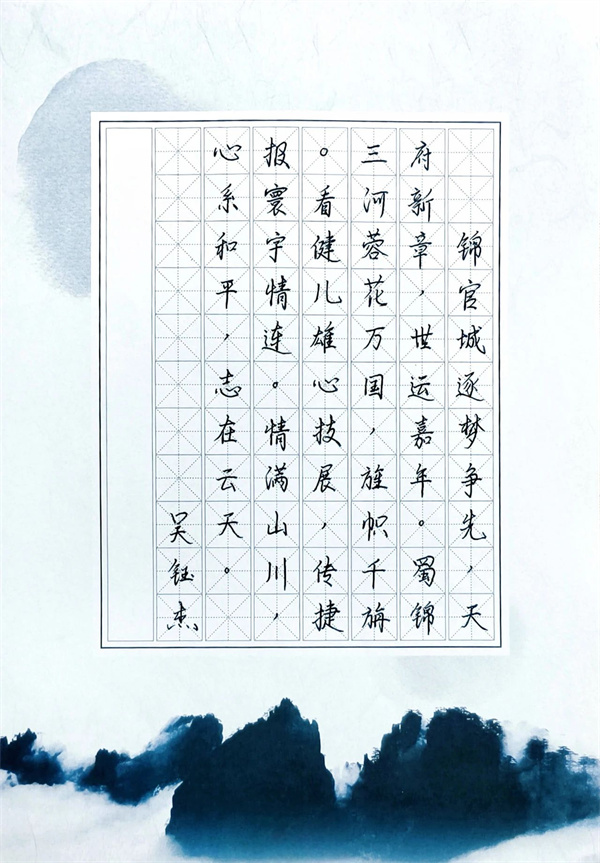 锦官城逐梦争先，天
府新章，世运嘉年。蜀锦
三河蓉花万国，旌帜千旃
。看健儿雄心技展，传捷
报寰宇情连。情满山川，
心系和平，志在云天。
吴钰杰